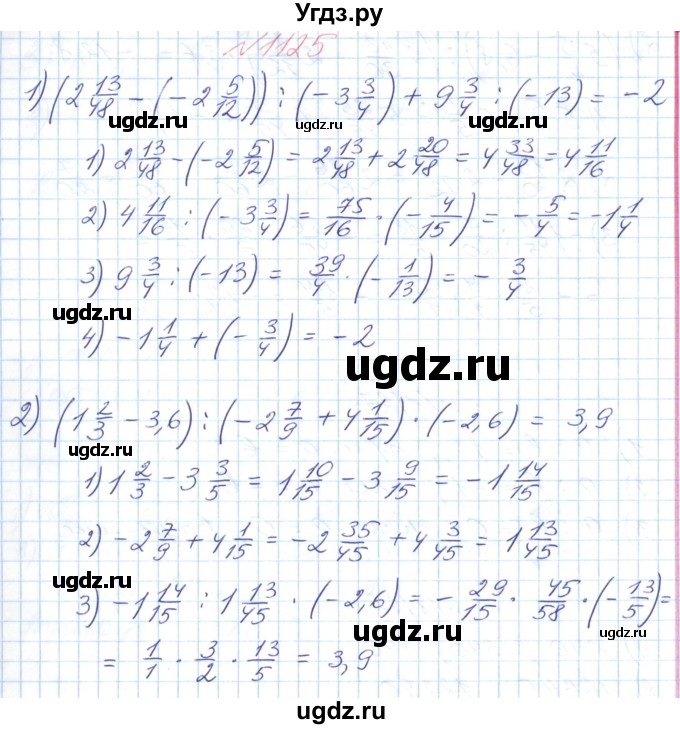 Угдз.ру
№1125
1) (2 13/48 - (-2 5/12)) : (-3 3/4) + 9 3/4 : (-13) = -2
ugdz.ru ugdz.ru ugdz.ru
1) 2 13/48 - (-2 5/12) = 2 13/48 + 2 20/48 = 4 33/48 = 4 11/16
2) 4 11/16 : (-3 3/4) = 75/16 · (-4/15) = -5/4 = -1 1/4
ugdz.ru
3) 9 3/4 : (-13) = 39/4 · (-1/13) = -3/4
ugdz.ru
4) -1 1/4 + (-3/4) = -2
ugdz.ru
2) (1 2/3 - 3,6) : (-2 7/9 + 4 1/15) · (-2,6) = 3,9
ugdz.ru
ugdz.ru
1) 1 2/3 - 3 3/5 = 1 10/15 - 3 9/15 = -1 14/15
2) -2 7/9 + 4 1/15 = -2 35/45 + 4 3/45 = 1 13/45
ugdz.ru
3) -1 14/15 : 1 13/45 · (-2,6) = -29/15 · 45/58 · (-13/5) =
ugdz.ru ugdz.ru
= 1/1 · 3/2 · 13/5 = 3,9
ugdz.ru